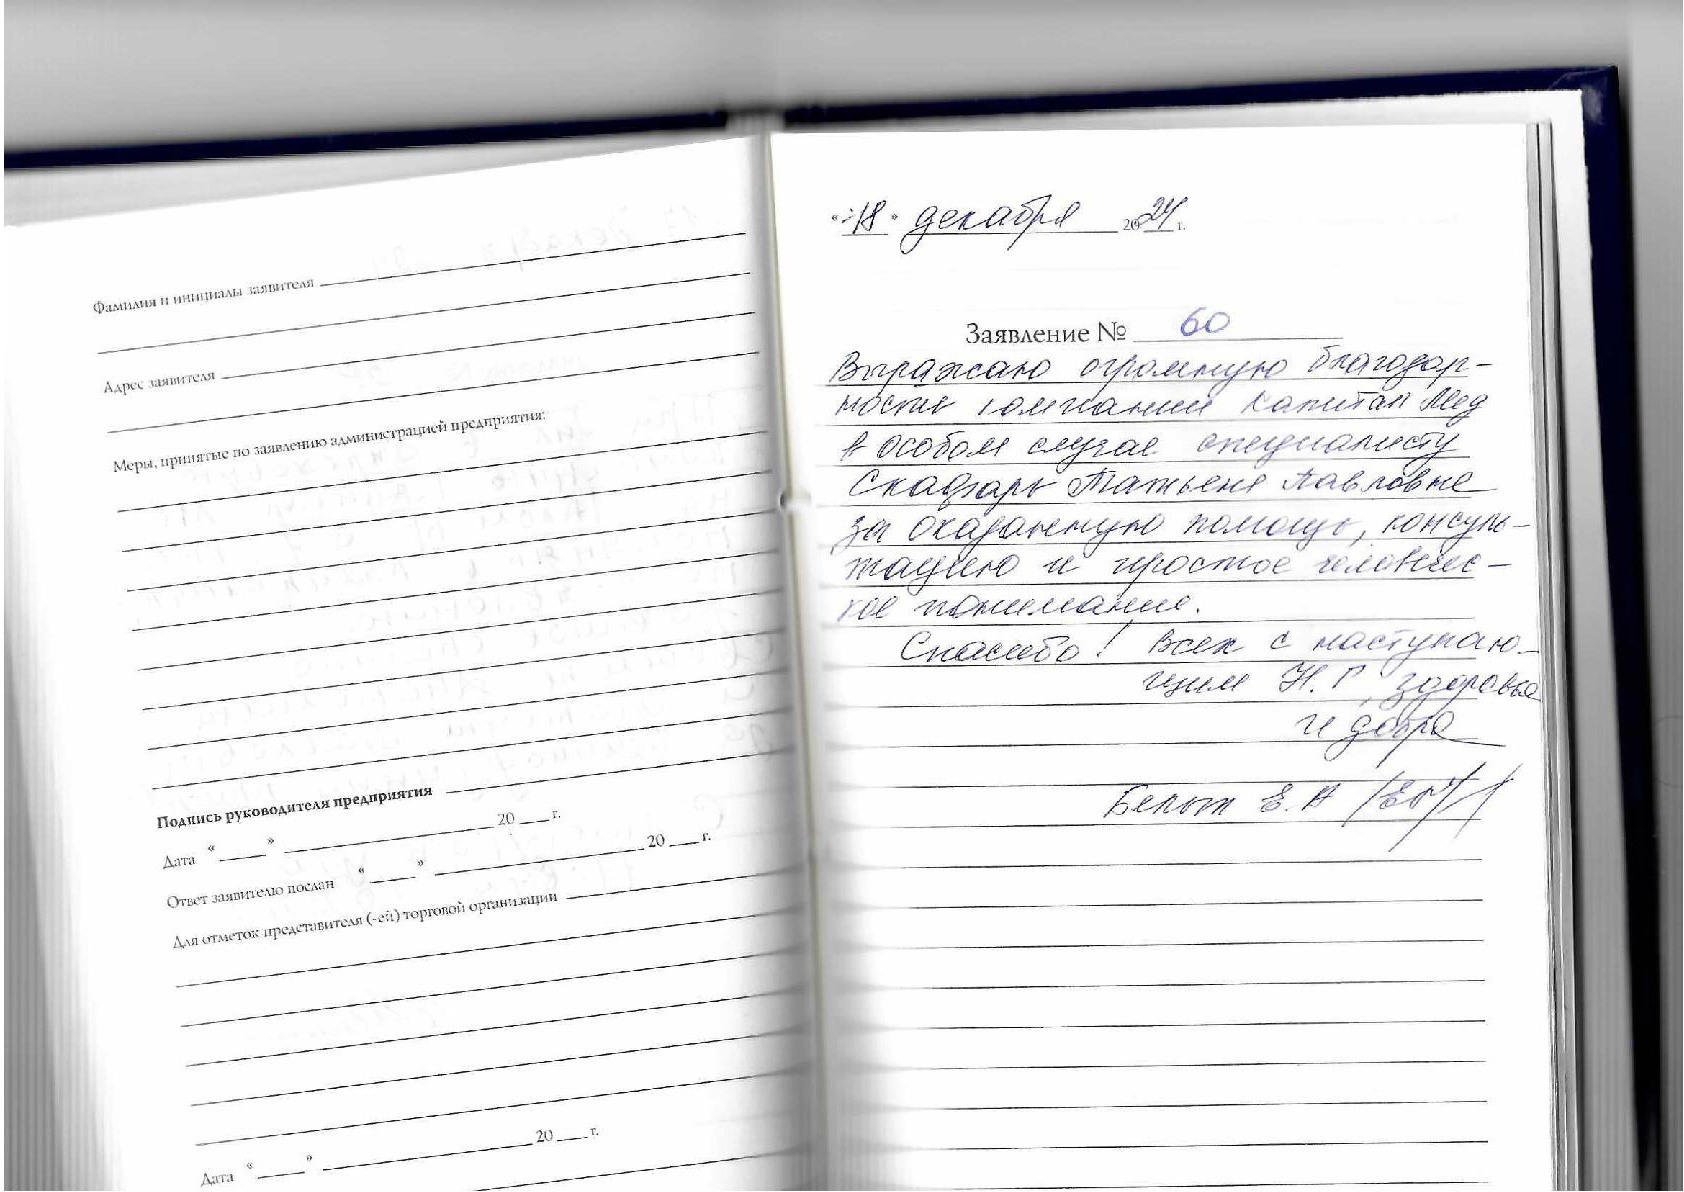 Фамилия и инициалы заявителя
Адрес заявителя
Меры, принятые по заявлению администрацией предприятия:
Подпись руководителя предприятия
Дата « » 20 г.
Ответ заявителю послан « » 20 г.
Для отметок представителя (-ей) торговой организации
Дата « » 20 г.
«18» декабря 2024 г.
Заявление № 60
Выражаю огромную благодар-
ность компании Капитал Мед
в особом случае специалисту
Татьяне Павловне
за оказанную помощь, консуль-
тацию и простое человечес-
кое понимание.
Спасибо! Всех с наступаю-
щим Н.Г, здоровья
и добра
Е.А